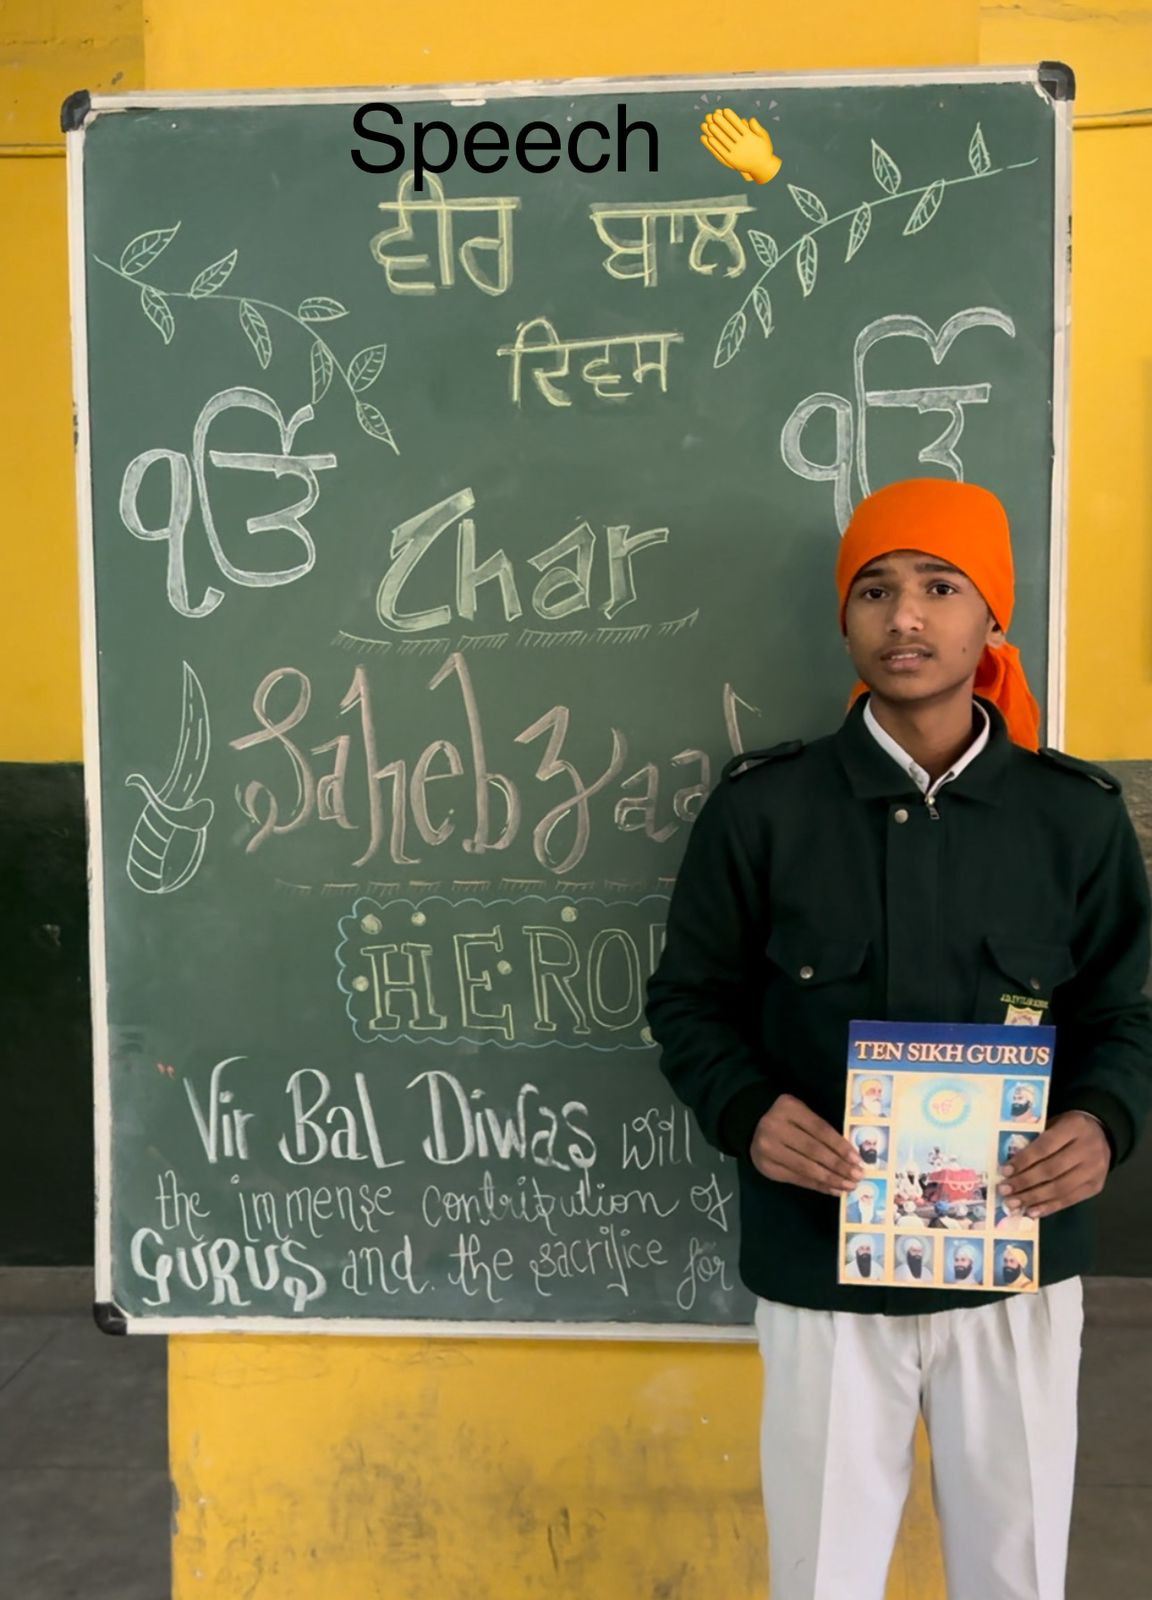 Speech 👏
ਵੀਰ ਬਾਲ
ਦਿਵਸ
ੴ ੴ
Char
Sahebzaad
HEROE
"Vir Bal Diwas will
the immense contribution of
GURUS and the sacrifice for
TEN SIKH GURUS